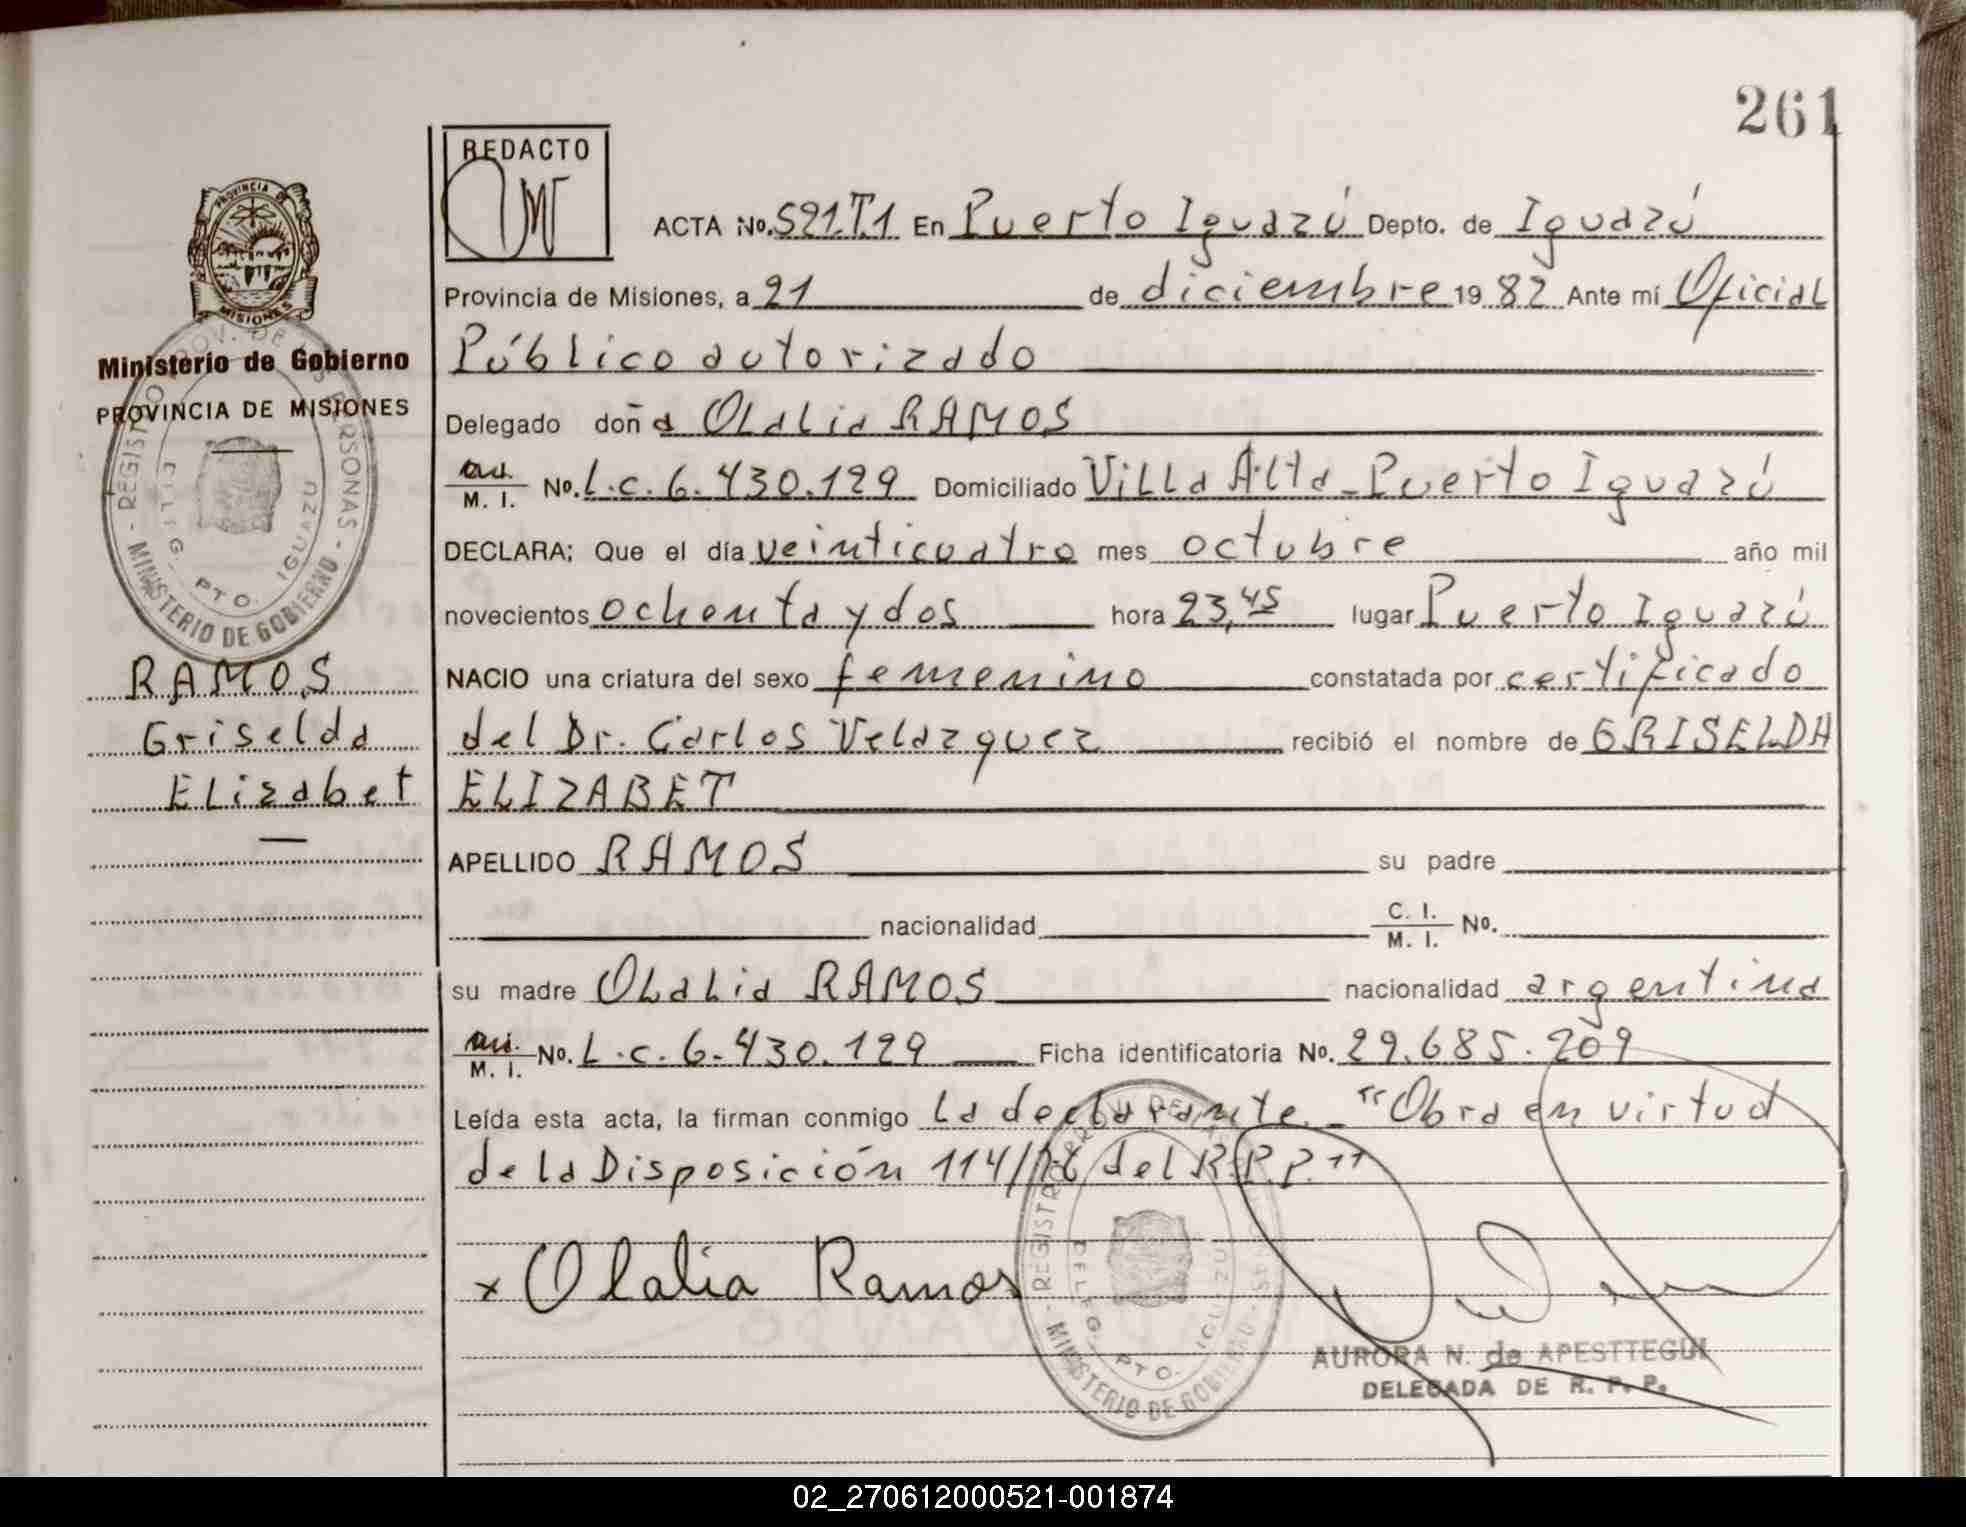 261
REDACTO
PROVINCIA DE
MISIONES
ACTA No. 521.T.1 En Puerto Iguazú Depto. de Iguazú
Provincia de Misiones, a 21 de diciembre 19 82 Ante mí Oficial
Público autorizado
Ministerio de Gobierno
PROVINCIA DE MISIONES
Delegado doña Olalia RAMOS
M. I. No. L.c. 6.430.129 Domiciliado Villa Alta - Puerto Iguazú
DECLARA; Que el día veinticuatro mes octubre año mil
novecientos ochenta y dos hora 23,45 lugar Puerto Iguazú
REGISTRO PROV. DE LAS PERSONAS - MINISTERIO DE GOBIERNO -
DELEG. PTO. IGUAZU
RAMOS
Griselda
Elizabet
NACIO una criatura del sexo femenino constatada por certificado
del Dr. Carlos Velazquez recibió el nombre de GRISELDA
ELIZABET
APELLIDO RAMOS su padre
nacionalidad C. I. M. I. No.
su madre Olalia RAMOS nacionalidad argentina
M. I. No. L.c. 6.430.129 Ficha identificatoria No. 29.685.209
Leída esta acta, la firman conmigo la declarante. - "Obra en virtud
de la Disposición 114/ del R.P.P."
x Olalia Ramos
REGISTRO PROV. DE LAS PERSONAS - MINISTERIO DE GOBIERNO -
DELEG. PTO. IGUAZU
AURORA N. de APESTTEGUI
DELEGADA DE R. P. P.
02_270612000521-001874